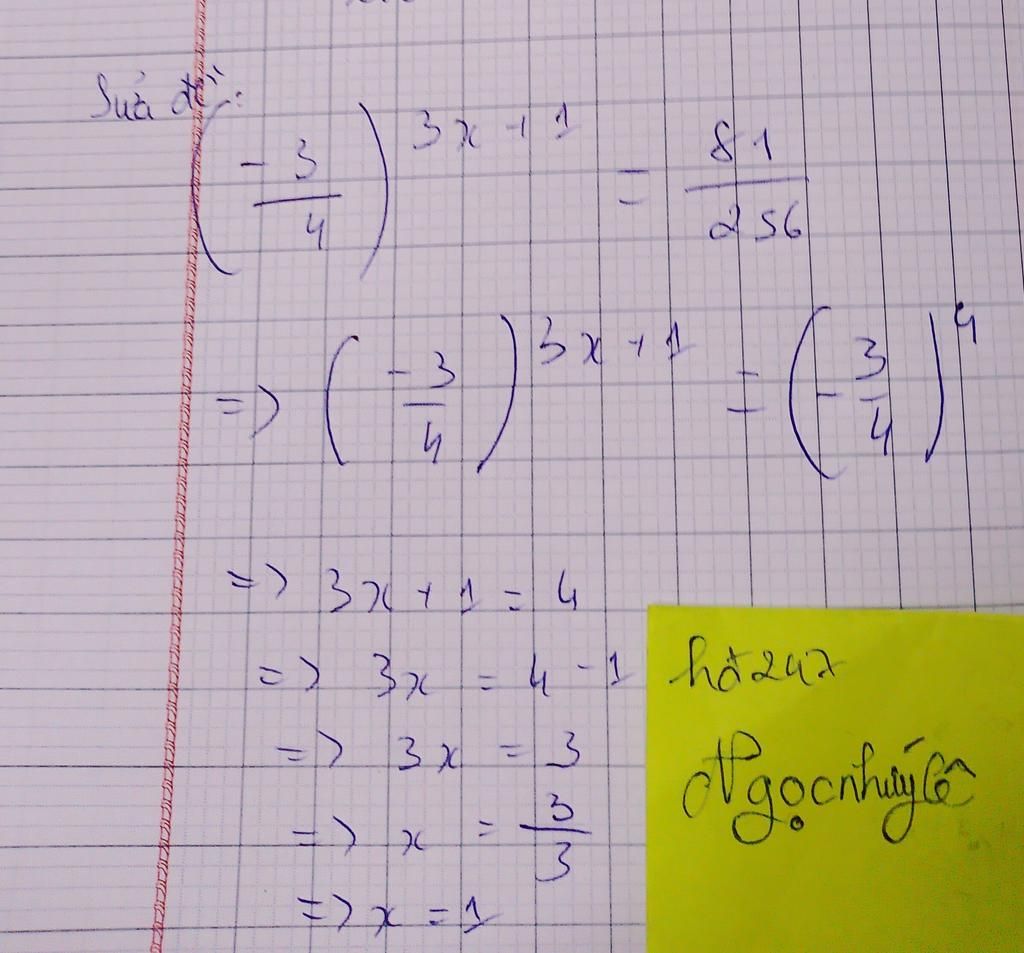 Sửa đề:
(-3/4)^(3x+1) = 81/256
=> (-3/4)^(3x+1) = (-3/4)^4
=> 3x + 1 = 4
=> 3x = 4 - 1
=> 3x = 3
=> x = 3/3
=> x = 1
hđ247
Ngọcnhưýlê